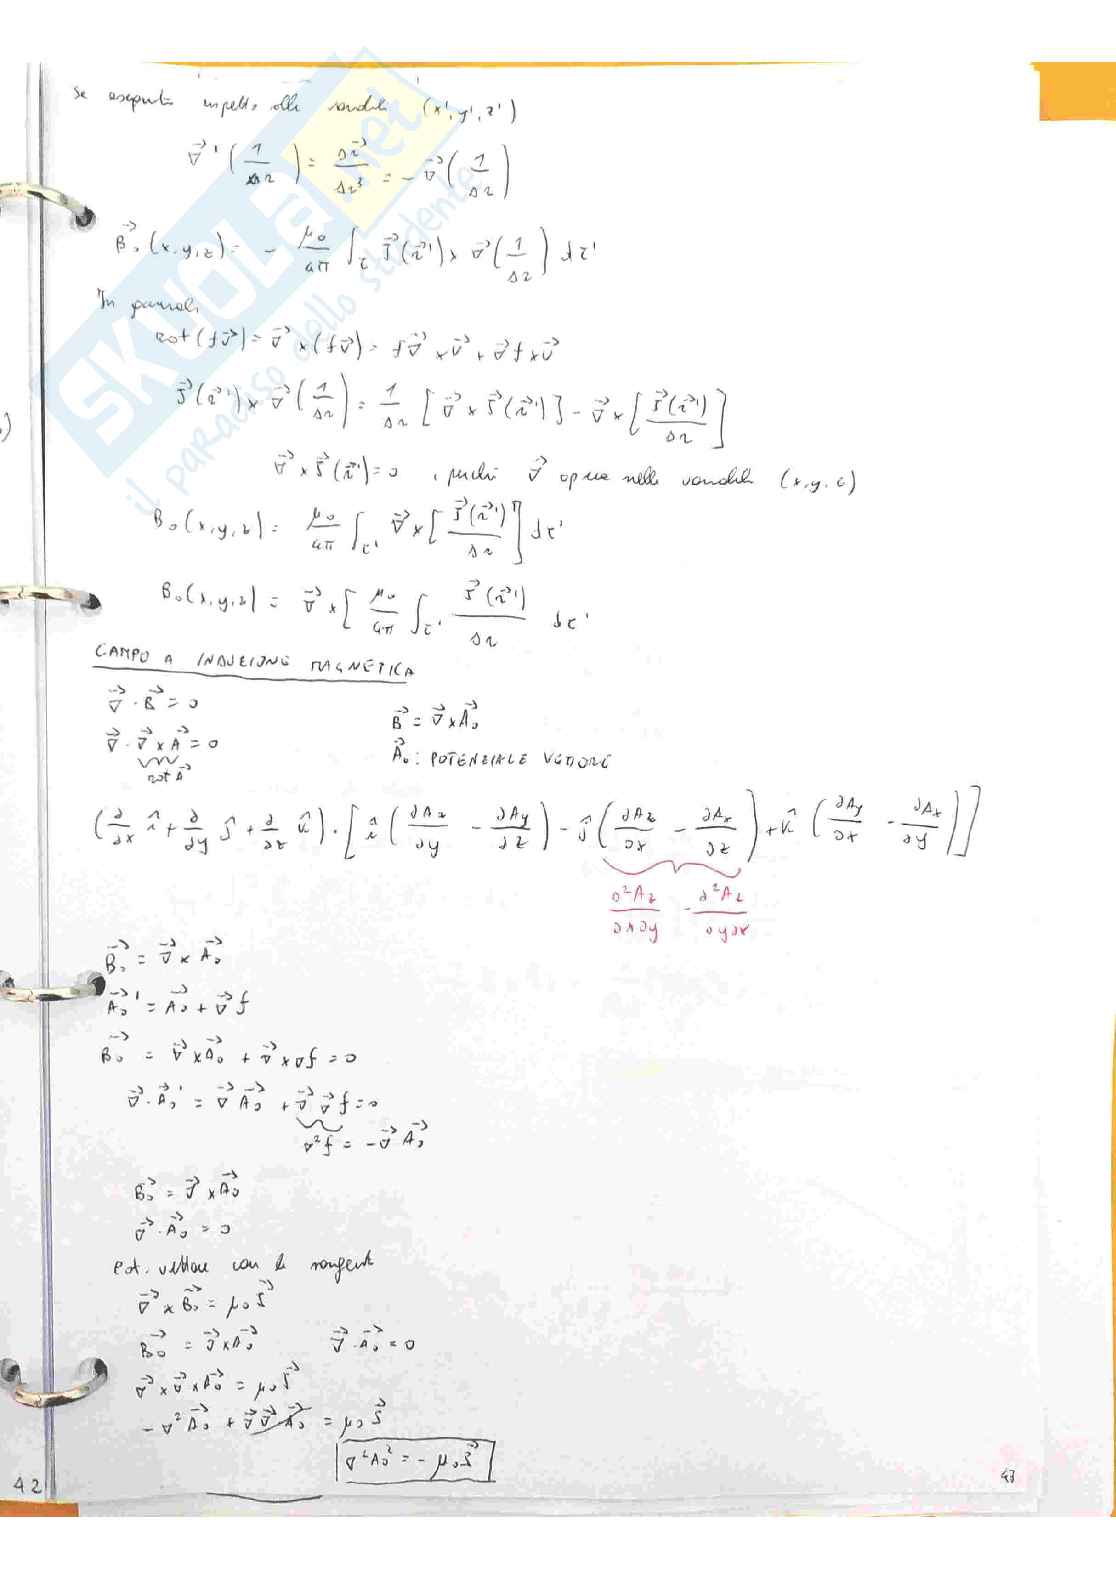 Se eseguita rispetto alle variabili (x', y', z')
∇⃗'(1/Δr) = Δr⃗/Δr³ = -∇⃗(1/Δr)
B⃗₀(x,y,z) = - μ₀/4π ∫_τ J⃗(r⃗') × ∇⃗(1/Δr) dτ'
In generale
rot(fv⃗) = ∇⃗ × (fv⃗) = f∇⃗ × v⃗ + ∇⃗f × v⃗
J⃗(r⃗') × ∇⃗(1/Δr) = 1/Δr [∇⃗ × J⃗(r⃗')] - ∇⃗ × [J⃗(r⃗')/Δr]
∇⃗ × J⃗(r⃗') = 0 , perché ∇⃗ opera nelle variabili (x,y,z)
B₀(x,y,z) = μ₀/4π ∫_τ' ∇⃗ × [J⃗(r⃗')/Δr] dτ'
B₀(x,y,z) = ∇⃗ × [μ₀/4π ∫_τ' J⃗(r⃗')/Δr dτ'
CAMPO A INDUZIONE MAGNETICA
∇⃗ · B⃗ = 0
B⃗ = ∇⃗ × A⃗₀
∇⃗ · ∇⃗ × A⃗ = 0
A⃗₀ : POTENZIALE VETTORE
rot A⃗
(∂/∂x î + ∂/∂y ĵ + ∂/∂z k̂) · [î (∂Az/∂y - ∂Ay/∂z) - ĵ (∂Az/∂x - ∂Ax/∂z) + k̂ (∂Ay/∂x - ∂Ax/∂y)]
∂²Az/∂x∂y - ∂²Az/∂y∂x
B⃗₀ = ∇⃗ × A⃗₀
A⃗₀' = A⃗₀ + ∇⃗f
B⃗₀ = ∇⃗ × A⃗₀ + ∇⃗ × ∇f = 0
∇⃗ · A⃗₀' = ∇⃗ A⃗₀ + ∇⃗ ∇⃗ f = 0
∇²f = -∇⃗ A⃗₀
B⃗₀ = ∇⃗ × A⃗₀
∇⃗ · A⃗₀ = 0
pot. vettore con le sorgenti
∇⃗ × B⃗₀ = μ₀ J⃗
B⃗₀ = ∇⃗ × A⃗₀
∇⃗ · A⃗₀ = 0
∇⃗ × ∇⃗ × A⃗₀ = μ₀ J⃗
-∇² A⃗₀ + ∇⃗ ∇⃗ A⃗₀ = μ₀ J⃗
∇²A⃗₀ = -μ₀ J⃗
42
43
SKUOLA.net
il paradiso dello studente